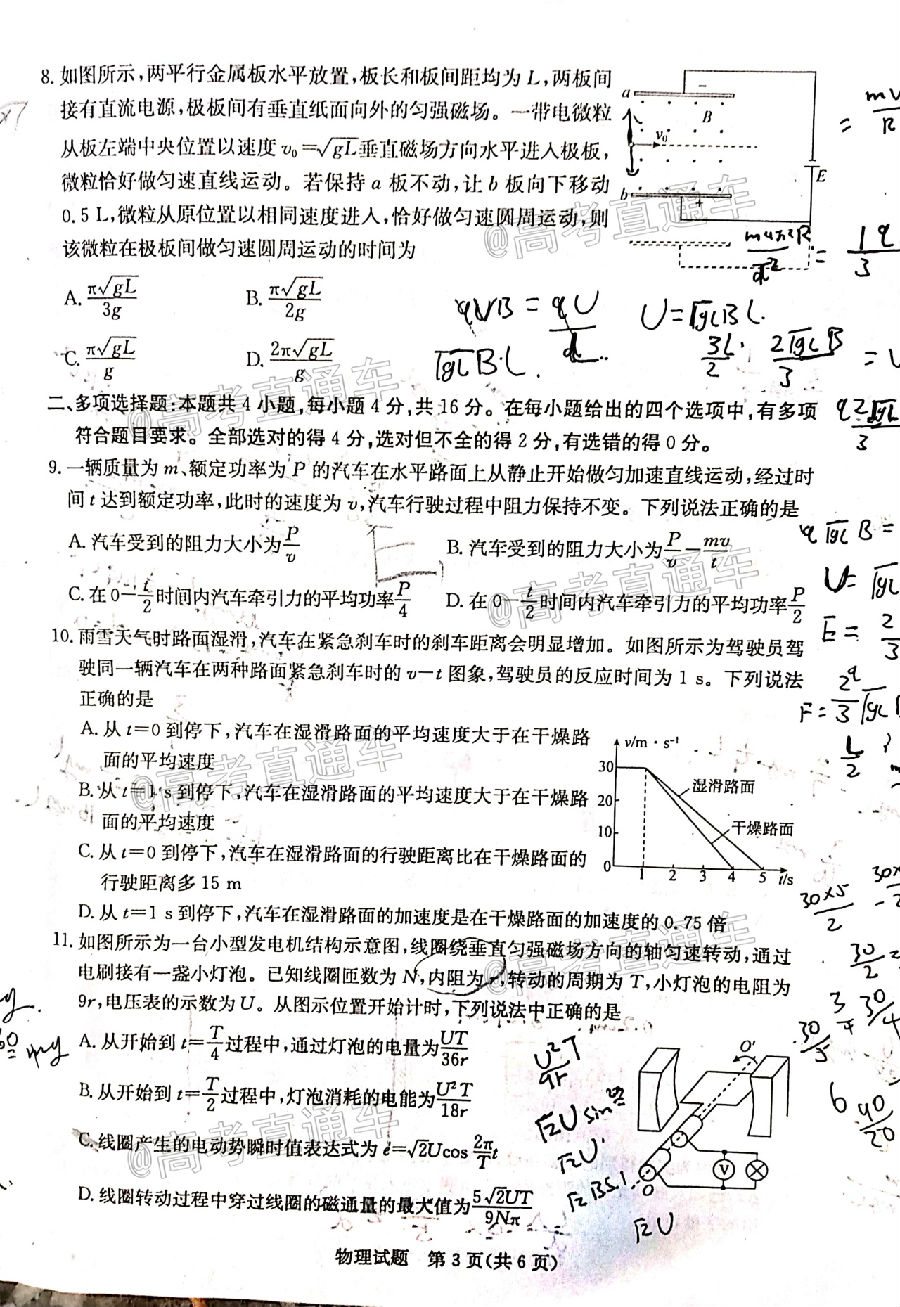 8. 如图所示,两平行金属板水平放置,板长和板间距均为 L,两板间
接有直流电源,极板间有垂直纸面向外的匀强磁场。一带电微粒
从板左端中央位置以速度 v₀=√gL垂直磁场方向水平进入极板,
微粒恰好做匀速直线运动。若保持 a 板不动,让 b 板向下移动
0.5 L,微粒从原位置以相同速度进入,恰好做匀速圆周运动,则
该微粒在极板间做匀速圆周运动的时间为
a
−
B
v₀
E
b
+
A. π√gL/3g
B. π√gL/2g
C. π√gL/g
D. 2π√gL/g
qVB = qU/d
U=√gLBL
√gLBL
二、多项选择题:本题共 4 小题,每小题 4 分,共 16 分。在每小题给出的四个选项中,有多项
符合题目要求。全部选对的得 4 分,选对但不全的得 2 分,有选错的得 0 分。
9. 一辆质量为 m、额定功率为 P 的汽车在水平路面上从静止开始做匀加速直线运动,经过时
间 t 达到额定功率,此时的速度为 v,汽车行驶过程中阻力保持不变。下列说法正确的是
A. 汽车受到的阻力大小为P/v
B. 汽车受到的阻力大小为P/v−mv/t
C. 在 0−t/2时间内汽车牵引力的平均功率P/4
D. 在 0−t/2时间内汽车牵引力的平均功率P/2
10. 雨雪天气时路面湿滑,汽车在紧急刹车时的刹车距离会明显增加。如图所示为驾驶员驾
驶同一辆汽车在两种路面紧急刹车时的 v−t 图象,驾驶员的反应时间为 1 s。下列说法
正确的是
A. 从 t=0 到停下,汽车在湿滑路面的平均速度大于在干燥路
面的平均速度
B. 从 t=1 s 到停下,汽车在湿滑路面的平均速度大于在干燥路
面的平均速度
C. 从 t=0 到停下,汽车在湿滑路面的行驶距离比在干燥路面的
行驶距离多 15 m
D. 从 t=1 s 到停下,汽车在湿滑路面的加速度是在干燥路面的加速度的 0.75 倍
v/m·s⁻¹
30
20
10
0
1 2 3 4 5 t/s
湿滑路面
干燥路面
11. 如图所示为一台小型发电机结构示意图,线圈绕垂直匀强磁场方向的轴匀速转动,通过
电刷接有一盏小灯泡。已知线圈匝数为 N,内阻为 r,转动的周期为 T,小灯泡的电阻为
9r,电压表的示数为 U。从图示位置开始计时,下列说法中正确的是
A. 从开始到 t=T/4过程中,通过灯泡的电量为UT/36r
B. 从开始到 t=T/2过程中,灯泡消耗的电能为U²T/18r
C. 线圈产生的电动势瞬时值表达式为 e=√2Ucos 2π/T t
D. 线圈转动过程中穿过线圈的磁通量的最大值为5√2UT/9Nπ
U²T/9r
√2U
O′
O
V
物理试题 第 3 页(共 6 页)
@高考直通车
@高考直通车
@高考直通车
@高考直通车
@高考直通车
@高考直通车